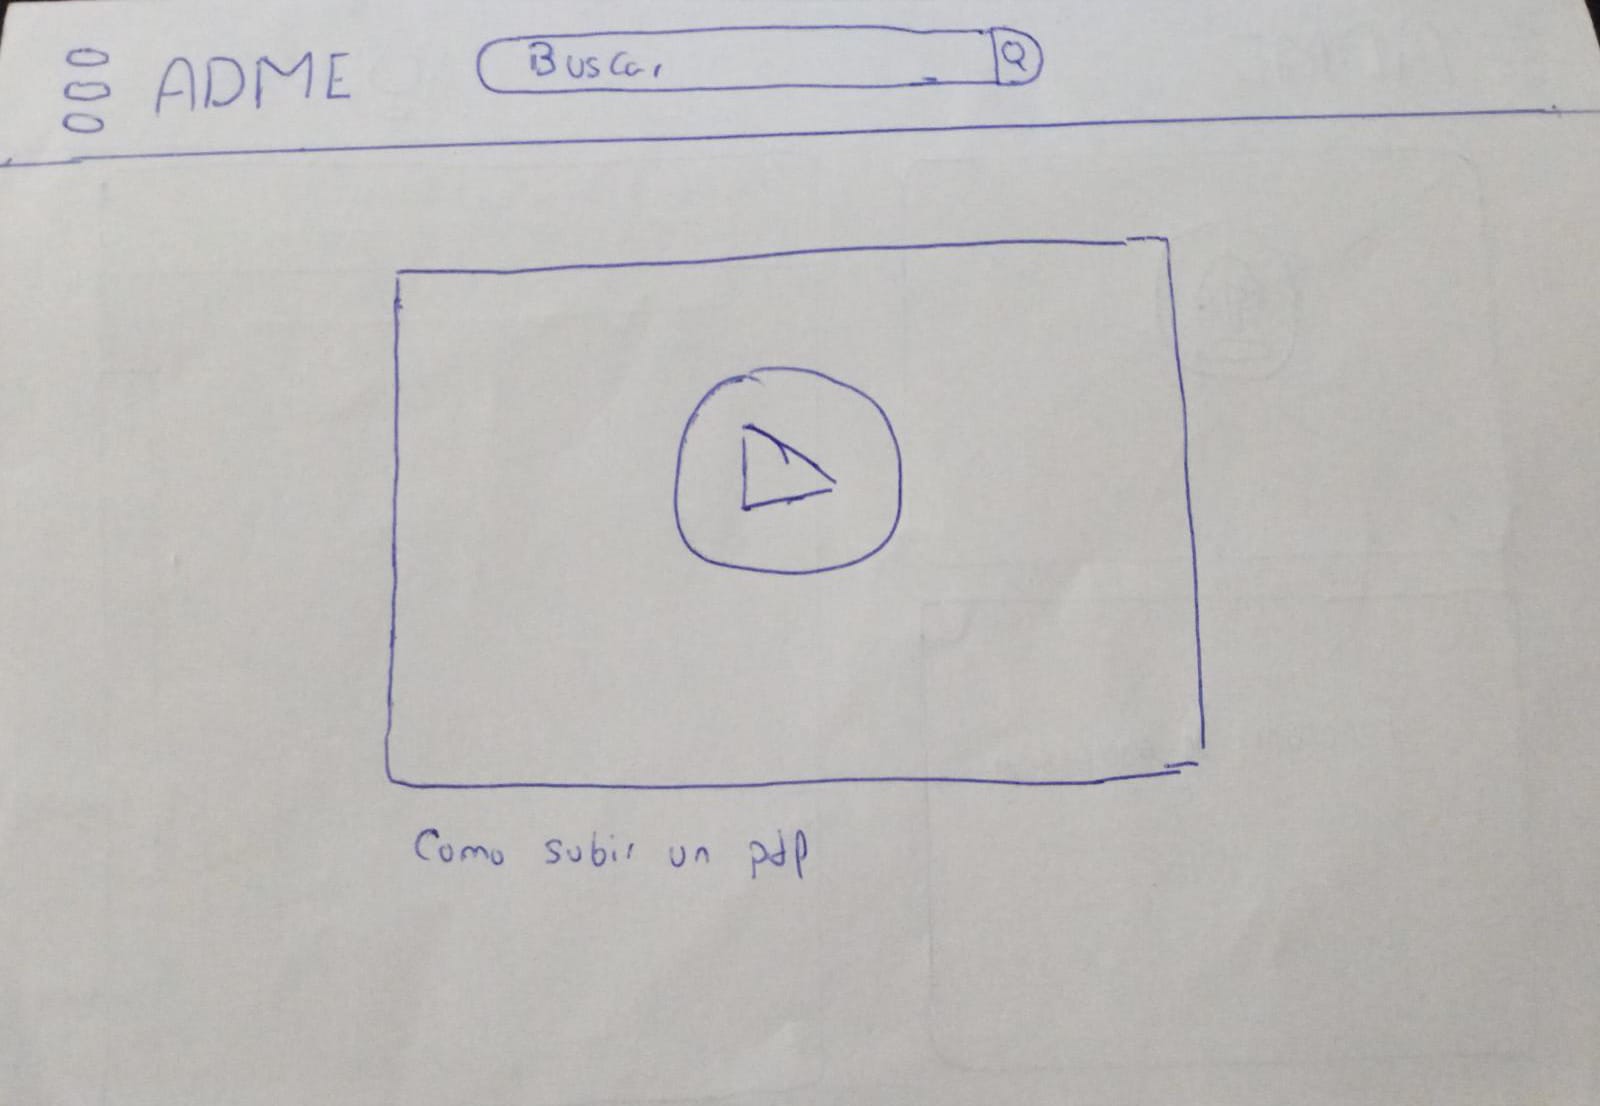 ADME
Buscar
Como subir un pdp